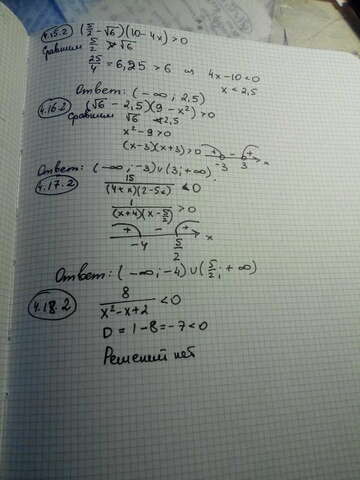 4.15.2 (5/2 - √6)(10 - 4x) > 0
Сравним 5/2 > √6
25/4 = 6,25 > 6 ⇒ 4x - 10 < 0
x < 2,5
Ответ: (-∞; 2,5)
4.16.2 (√6 - 2,5)(9 - x²) > 0
Сравним √6 < 2,5
x² - 9 > 0
(x-3)(x+3) > 0 + - + -3 3 x
Ответ: (-∞; -3) ∪ (3; +∞)
4.17.2 15/((4+x)(2-5x)) < 0
1/((x+4)(x - 5/2)) > 0
+ - + x
-4 5/2
Ответ: (-∞; -4) ∪ (5/2; +∞)
4.18.2 8/(x² - x + 2) < 0
D = 1 - 8 = -7 < 0
Решений нет